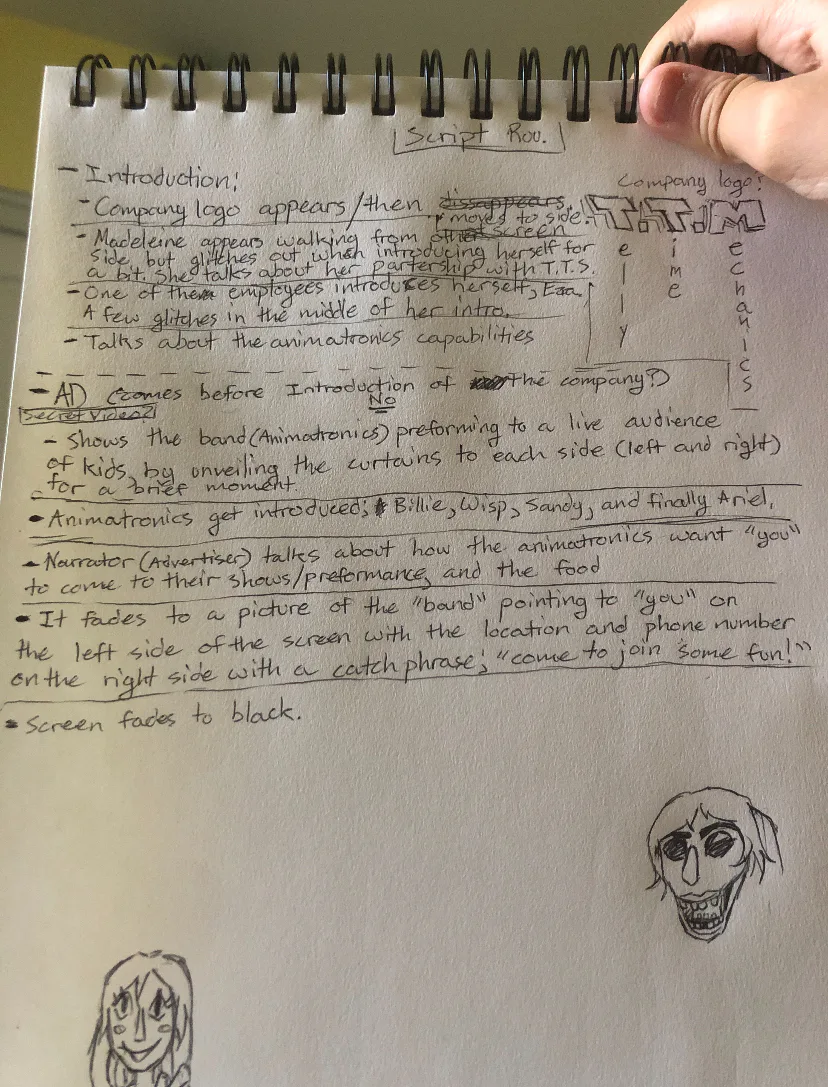 Script Rou.
- Introduction:
Company logo:
- Company logo appears/then dissappears.
moves to side.
T.T.M
elly
ime
echanics
- Madeleine appears walking from other screen
side, but glitches out when introducing herself for
a bit. She talks about her partership with T.T.S.
- One of them employees introduces herself,
A few glitches in the middle of her intro.
- Talks about the animatronics capabilities
- AD (comes before Introduction of the company?)
No
Secret Video?
- Shows the band (Animatronics) preforming to a live audience
of kids, by unveiling the curtains to each side (left and right)
for a brief moment.
• Animatronics get introduced; Billie, Wisp, Sandy, and finally Ariel.
- Narrator (Advertiser) talks about how the animatronics want "you"
to come to their shows/preformance, and the food
• It fades to a picture of the "band" pointing to "you" on
the left side of the screen with the location and phone number
on the right side with a catch phrase; "come to join some fun!"
• Screen fades to black.